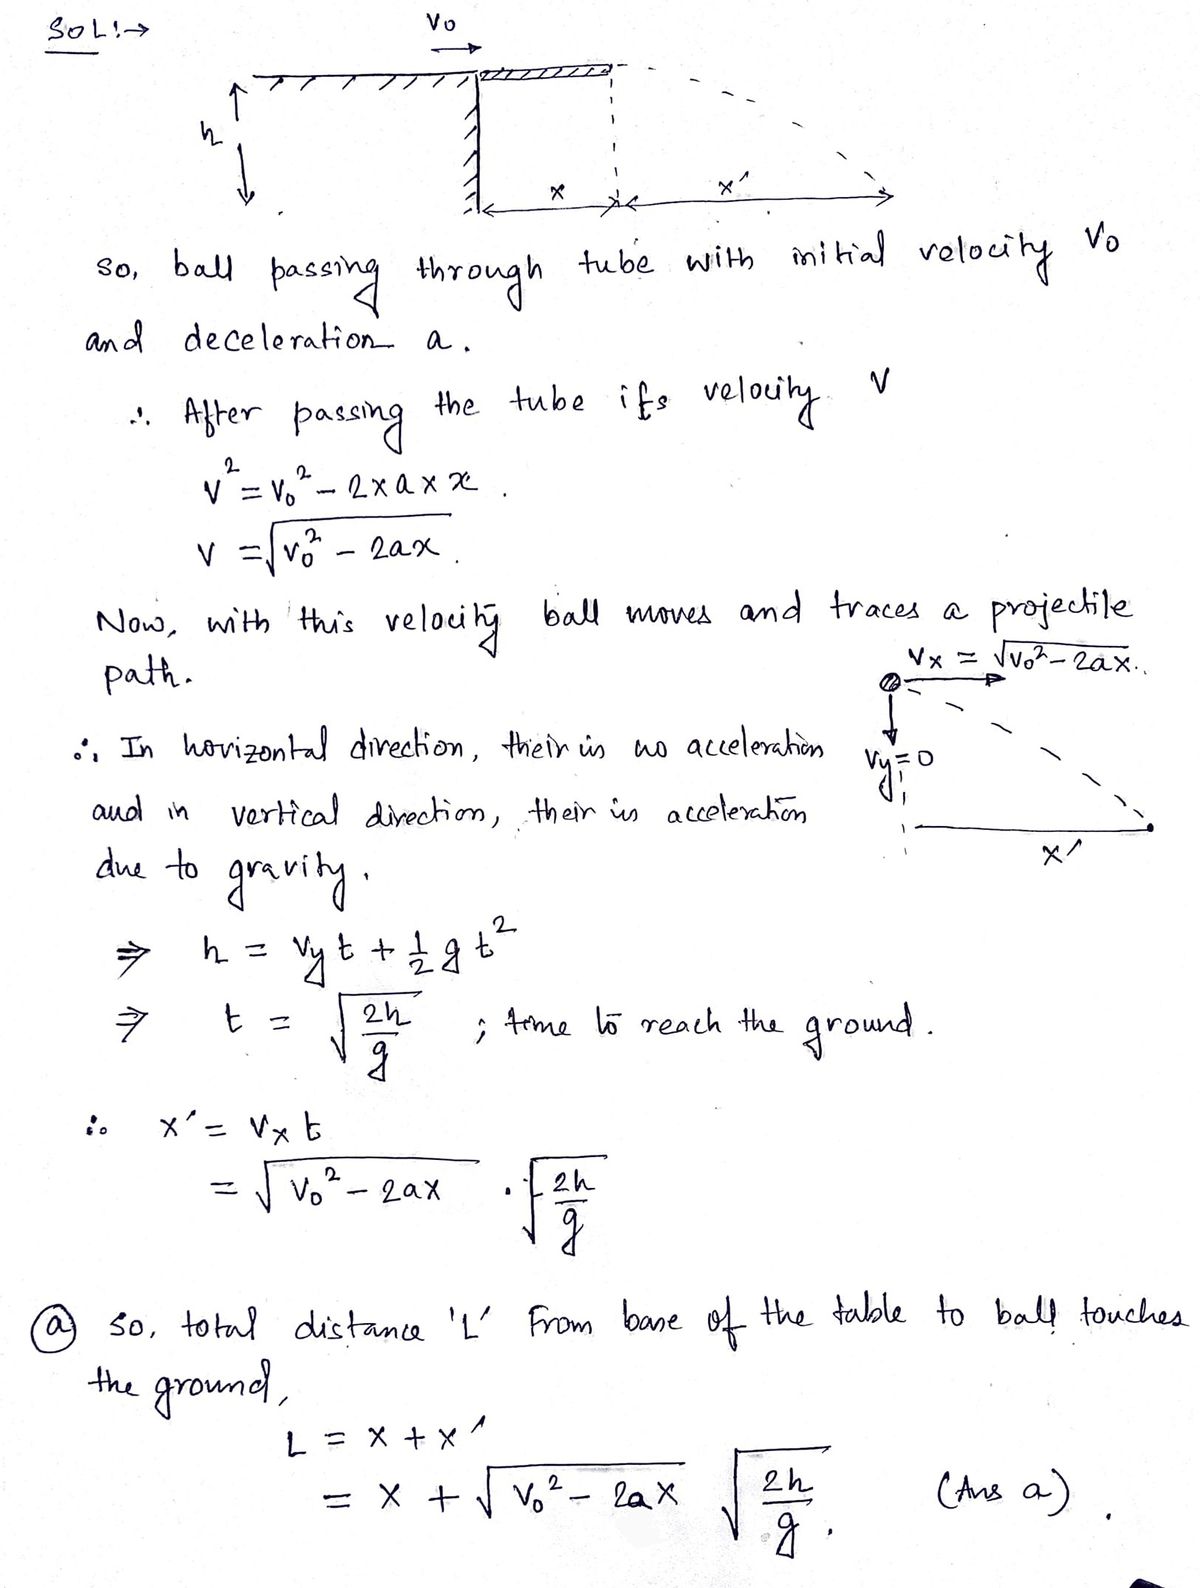 SOL:→
V₀
h
x x′
so, ball passing through tube with initial velocity V₀
and deceleration a.
∴ After passing the tube its velocity V
V² = V₀² − 2×a×x.
V = √(V₀² − 2ax).
Now, with this velocity ball moves and traces a projectile
path.
Vx = √(V₀² − 2ax).
∴ In horizontal direction, their is no acceleration
Vy = 0
and in vertical direction, their is acceleration
x′
due to gravity.
⇒ h = Vy t + ½ g t²
⇒ t = √(2h/g) ; time to reach the ground.
∴ x′ = Vx t
= √(V₀² − 2ax) · √(2h/g)
(a) so, total distance 'L' From base of the table to ball touches
the ground,
L = x + x′
= x + √(V₀² − 2ax) √(2h/g). (Ans a).